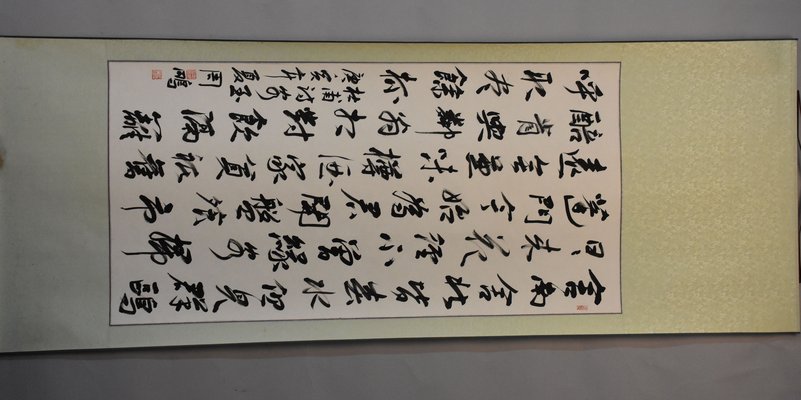 舍南舍北皆春水但見群鷗
日日來花徑不曾緣客掃
蓬門今始為君開盤飧市
遠無兼味樽酒家貧秖舊
醅肯與鄰翁相對飲隔籬
呼取盡餘杯
杜甫詩客至
庚寅年夏
周鵬